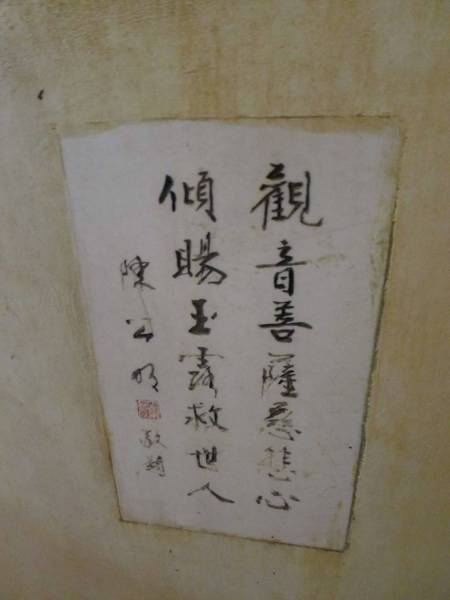 觀音善薩慈悲心
傾賜玉露救世人
陳公明
敬題